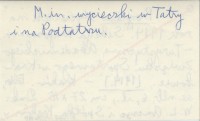 M.in. wycieczki w Tatry
i na Podtatrzu.